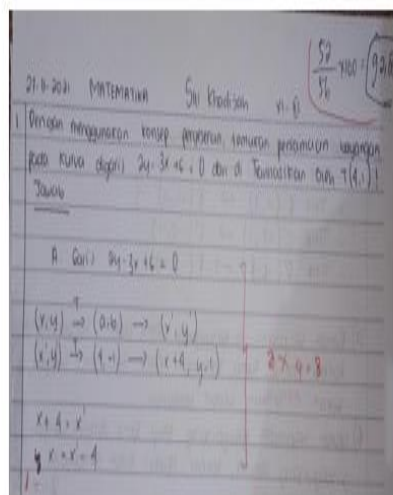 52/56 x100 = 92,8
21-11-2021 MATEMATIKA Siti Khadijah XI-
1 Dengan menggunakan konsep pergeseran, temukan persamaan bayangan
pada kurva digaris 2y-3x+6=0 dan di Translasikan oleh T(4,-1)!
Jawab
A Garis 2y-3x+6=0
(x,y) →T (a,b) → (x',y')
(x,y) →T (4,-1) → (x+4, y-1)
2 x 4 = 8
x+4=x'
x=x'-4